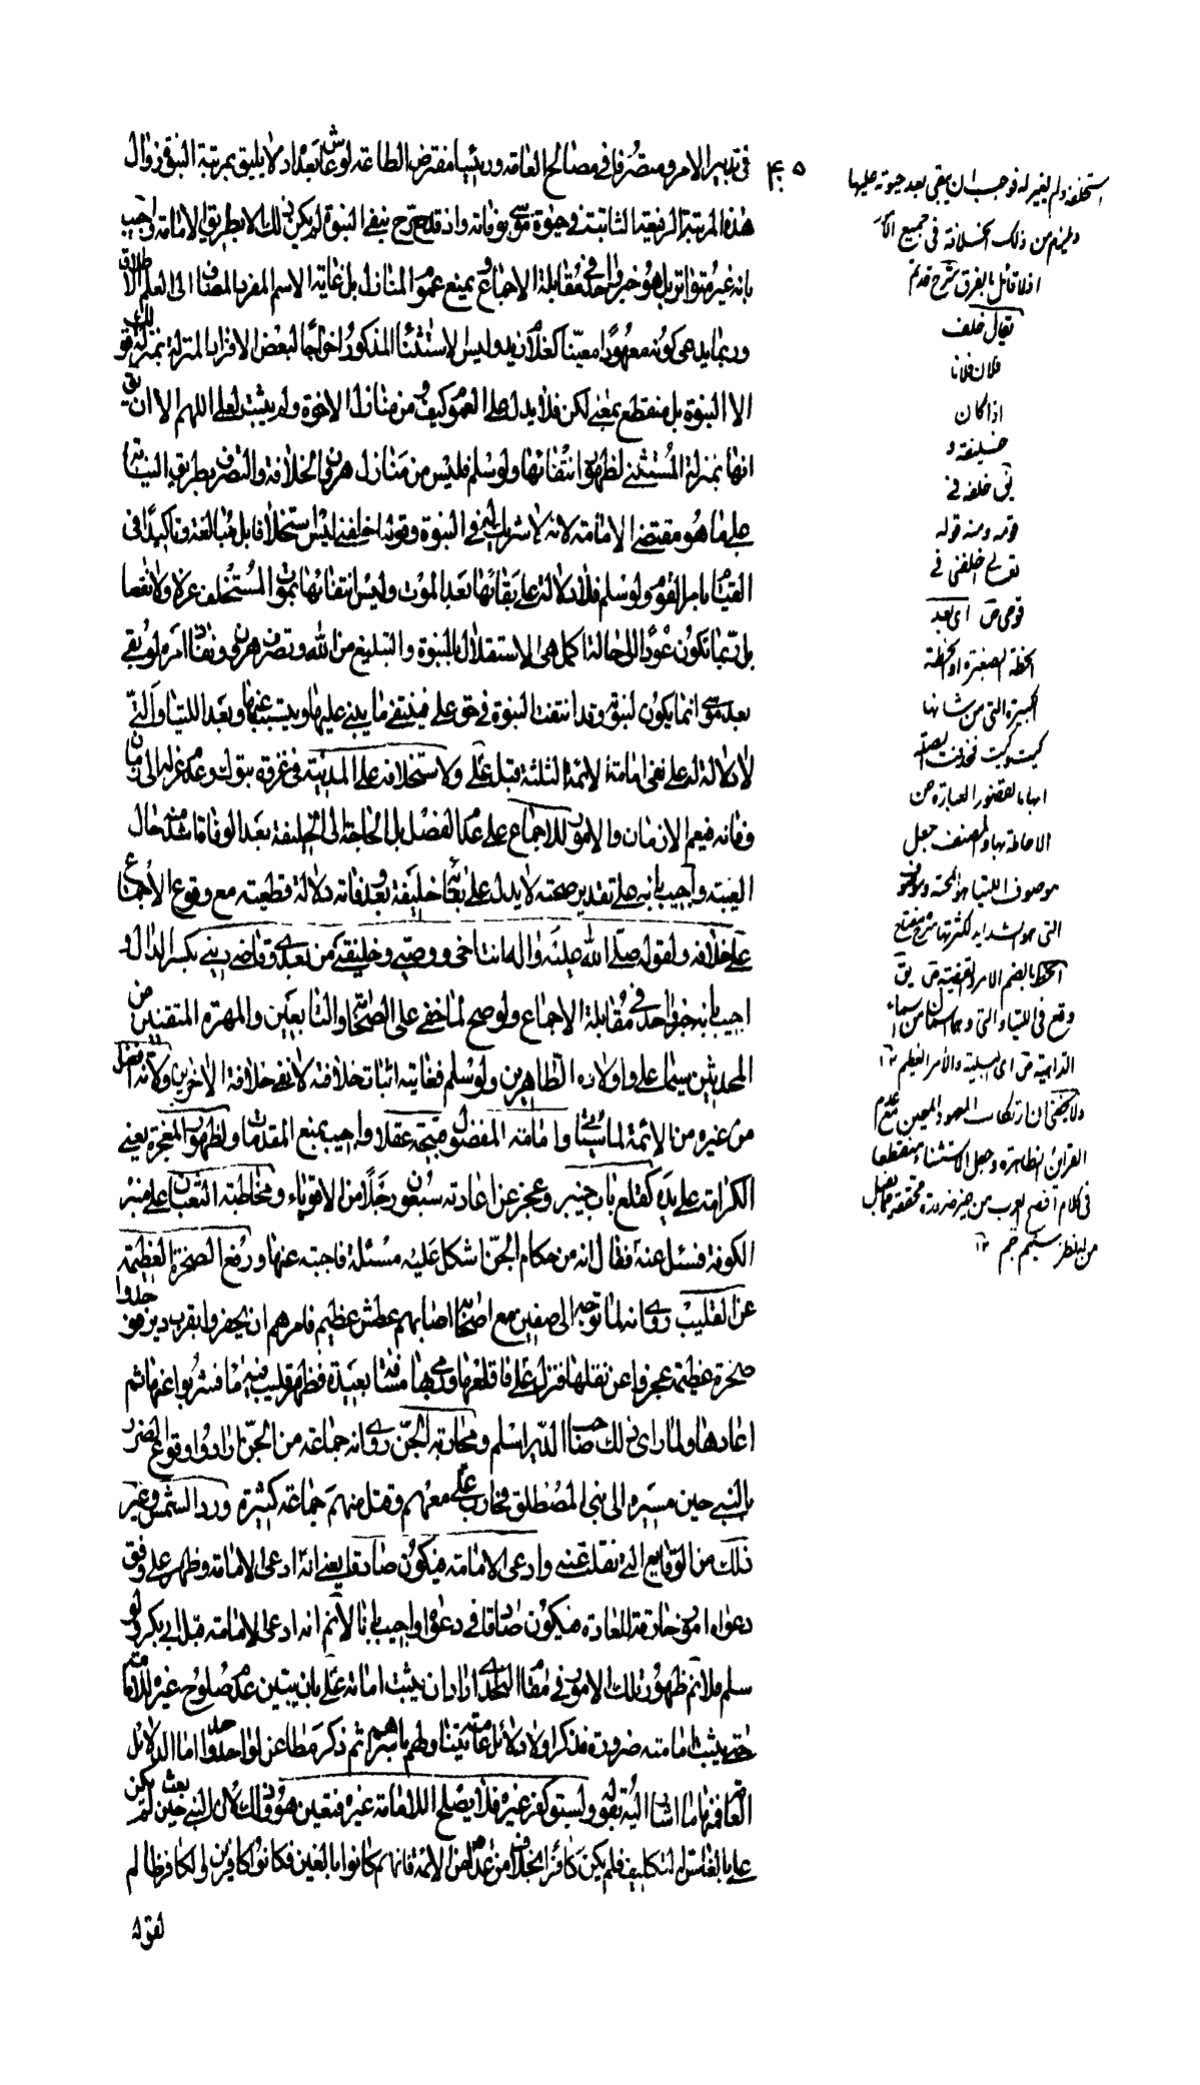 في تدبير الامر و متصرفا في مصالح العامة و رئيسا مفترض الطاعة لو عاش بعده اذ لا يليق بمرتبة النبوة زوال
هذه المرتبة الرفيعة الثابتة في حيوة موسى بوفاته و اذ قد صرح بنفي النبوة لم يكن ذلك الا بطريق الامامة و اجيب
بانه غير متواتر بل هو خبر واحد في مقابلة الاجماع و بمنع عموم المنازل بل غاية الاسم المفرد المضاف الى العلم الاطلاق
و ربما يدعى كونه معهودا معينا كغلام زيد و ليس الاستثناء المذكور اخراجا لبعض الافراد المنزلة بمنزلة قولك
الا النبوة بل منقطع بمعنى لكن فلا يدل على العموم كيف و من منازله الاخوة و لم يثبت لعلي اللهم الا ان يق
انها بمنزلة المستثنى لظهور انتفائها و لو سلم فليس من منازل هرون الخلافة و التصرف بطريق النيابة
على ما هو مقتضى الامامة لانه شريك له في النبوة و قوله اخلفني ليس استخلافا بل مبالغة و تاكيدا في
القيام بامر القوم و لو سلم فلا دلالة على بقائها بعد الموت و ليس انتفائها بموت المستخلف عزلا و لا نقصا
بل ربما تكون عودا الى حالة اكمل هي الاستقلال بالنبوة و التبليغ من الله و تصرف هرون و نفاذ امره لو بقي
بعد موسى انما يكون لنبوته و قد انتفت النبوة في حق علي فينتفي ما يبتني عليها و يتسبب عنها و بعد اللتيا و التي
لا دلالة له على نفي امامة الائمة الثلثة قبل علي و لاستخلافه على المدينة في غزوة تبوك و عدم عزله الى زمان
وفاته فيعم الازمان و الامور للاجماع على عدم الفصل بل الحاجة الى الخليفة بعد الوفاة اشد منه حال
الغيبة و اجيب بانه على تقدير صحته لا يدل على بقائه خليفة بعد وفاته دلالة قطعية مع وقوع الاجماع
على خلافه و لقوله صلى الله عليه و اله انت اخي و وصيي و خليفتي من بعدي و قاضي ديني بكسر الدال و
اجيب بانه خبر واحد في مقابلة الاجماع و لو صح لما خفي على الصحابة و التابعين و المهرة المتقنين من
المحدثين سيما علي و اولاده الطاهرين و لو سلم فغايته اثبات خلافته لا نفي خلافة الاخرين و لانه افضل
من غيره من الائمة لما سياتي و امامة المفضول قبيحة عقلا و اجيب بمنع المقدمات و لظهور المعجزة يعني
الكرامة على يده كقلع باب خيبر و عجز عن اعادته سبعون رجلا من الاقوياء و مخاطبة الثعبان على منبر
الكوفة فسئل عنه فقال انه من حكام الجن اشكل عليه مسئلة فاجبته عنها و رفع الصخرة العظيمة
عن القليب روي انه لما توجه الى صفين مع اصحابه اصابهم عطش عظيم فامرهم ان يحفروا بقرب دير فوجدوا
صخرة عظيمة عجزوا عن نقلها فنزل علي فاقلعها و رمى بها مسافة بعيدة فظهر قليب فيه ماء فشربوا عنها ثم
اعادها و لما راى ذلك صاحب الدير اسلم و محاربة الجن روي انه جماعة من الجن ارادوا وقوع الضرر
بالنبي حين مسيره الى بني المصطلق فحارب علي معهم و قتل منهم جماعة كثيرة و رد الشمس و غير
ذلك من الوقايع التي نقلت عنه و ادعى الامامة فيكون صادقا يعني انه ادعى الامامة و ظهر على وفق
دعواه امور خارقة للعادة فيكون صادقا في دعواه و اجيب بانا لانم انه ادعى الامامة قبل ابي بكر و لو
سلم فلانم ظهور تلك الامور في مقام التحدي اراد ان يثبت امامة علي بان يبين عدم صلوح غيره للامامة
حتى يثبت امامته ضرورة فذكر اولا دلائل عامة يتناولهم باسرهم ثم ذكر مطاعن لواحد واحد اما الدلائل
العامة فما اشار اليه بقوله و لسبق كفر غيره فلا يصلح للامامة غيره فتعين هو و ذلك لان النبي حين بعث لم يكن
علي بالغا سن التكليف فلم يكن كافرا بخلاف من عداه من الائمة فانهم كانوا بالغين فكانوا كافرين و الكافر ظالم
لقوله
۴۰۵
استخلفه و لم يغير له فوجب ان يبقى بعد حيوته عليها
و يلزم من ذلك الخلافة في جميع
اذ لا قائل بالفرق شرح قديم
يقال خلف
فلان فلانا
اذا كان
خليفته و
يق خلفه في
قومه و منه قوله
تعالى اخلفني في
قومي ص اي بعد
الخطة الصغيرة او الخطة
الكبيرة التي من شانها
كيت و كيت فحذفت الصلة
ايهاما لقصور العبارة عن
الاحاطة بها و المصنف جعل
التي هو الشدايد لكثرتها شرح مفتاح
الخطة بالضم الامر و القضية ص يق
وقع في اللتيا و التي و هما اسمان من اسماء
الداهية ص اي بلية و الأمر العظيم ١٢
و لا يخفى ان ارتكاب المعهود المعين مع عدم
القرائن الظاهرة و جعل الاستثناء منقطعا
في كلام افصح العرب من غير ضرورة